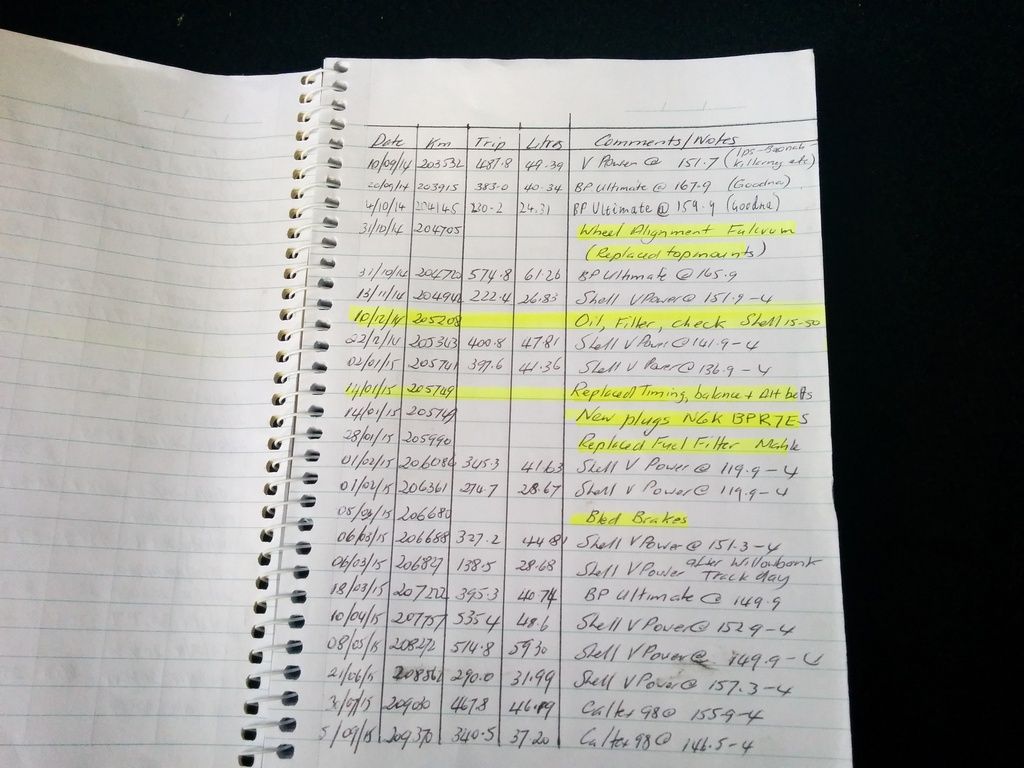 Date Km Trip Litres Comments/Notes
10/09/14 203532 487.8 49.39 V Power @ 151.7
20/09/14 203915 383.0 40.34 BP Ultimate @ 167.9 (Goodna)
4/10/14 204145 230.2 24.31 BP Ultimate @ 159.9 (Goodna)
31/10/14 204705 Wheel Alignment Fulcrum
(Replaced topmounts)
31/10/14 204720 574.8 61.26 BP Ultimate @ 165.9
13/11/14 204942 222.4 26.83 Shell VPower @ 151.9-4
10/12/14 205208 Oil, Filter, check Shell 15-50
22/12/14 205343 400.8 47.81 Shell V Power @ 141.9-4
02/01/15 205741 397.6 41.36 Shell V Power @ 136.9-4
14/01/15 205749 Replaced Timing, balance + Alt belts
14/01/15 205749 New plugs NGK BPR7ES
28/01/15 205990 Replaced Fuel Filter Mahle
01/02/15 206086 345.3 41.63 Shell V Power @ 119.9-4
01/02/15 206361 274.7 28.67 Shell V Power @ 119.9-4
05/03/15 206680 Bled Brakes
06/03/15 206688 327.2 44.81 Shell VPower @ 151.3-4
06/03/15 206827 138.5 28.68 Shell VPower after Willowbank
Track day
18/03/15 207222 395.3 40.74 BP Ultimate @ 149.9
10/04/15 207757 535.4 48.6 Shell VPower @ 152.9-4
08/05/15 208272 514.8 59.30 Shell VPower @ 149.9-4
21/06/15 208561 290.0 31.99 Shell VPower @ 157.3-4
31/07/15 209030 467.8 46.19 Caltex 98 @ 155.9-4
5/09/15 209370 340.5 37.20 Caltex 98 @ 146.5-4